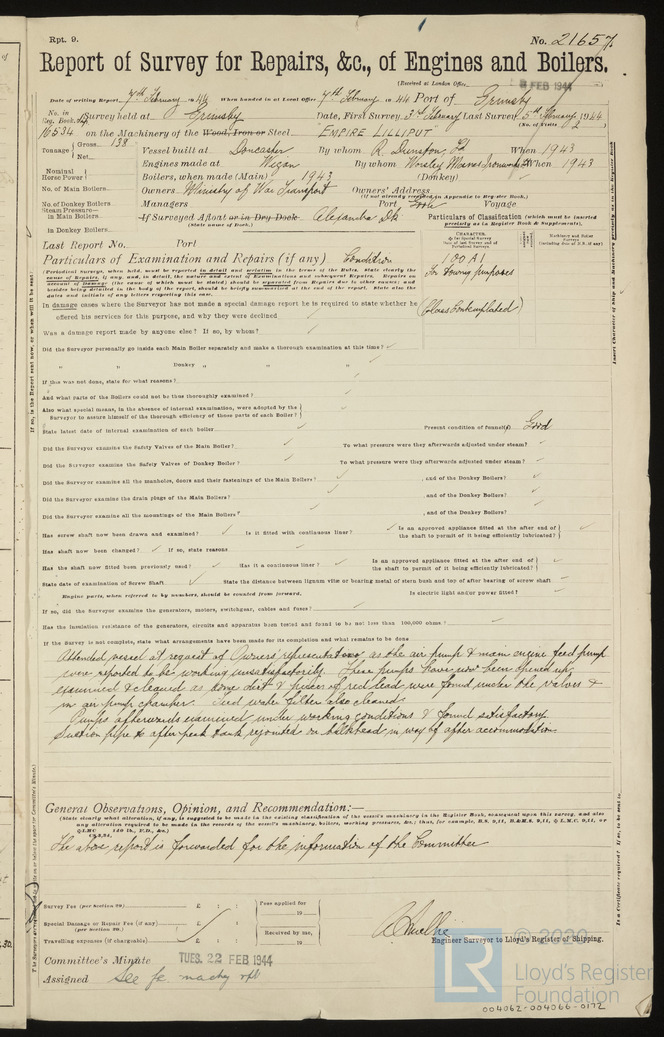 Rpt. 9. No. 21657
Report of Survey for Repairs, &c., of Engines and Boilers.
(Received at London Office
8 FEB 1944
Date of writing Report 7th February 1944 When handed in at Local Office 7th February 1944 Port of Grimsby
No. in Reg. Book. Survey held at Grimsby Date, First Survey 3rd February Last Survey 5th February 1944
(No. of Visits 2
16534 on the Machinery of the Wood, Iron or Steel "EMPIRE LILLIPUT"
Tonnage Gross 138 Net
Vessel built at Doncaster By whom R. Dunston, Ld When 1943
Engines made at Wigan By whom Worsley Mesnes Ironworks Ld When 1943
Nominal Horse Power
Boilers, when made (Main) 1943 (Donkey)
No. of Main Boilers
Owners Ministry of War Transport Owners' Address
(If not already recorded in Appendix to Register Book.)
No. of Donkey Boilers
Managers Port Voyage
Steam Pressure in Main Boilers
If Surveyed Afloat or in Dry Dock Alexandra Dk
(State name of Dock.)
in Donkey Boilers
Particulars of Classification (which must be inserted precisely as in Register Book & Supplements).
Last Report No. Port
CHARACTER.
Machinery and Boiler Surveys
Particulars of Examination and Repairs (if any) Condition
100 A1
for towing purposes
(Class Contemplated)
(Periodical Surveys, when held, must be reported in detail and seriatim in the terms of the Rules. State clearly the cause of Repairs, if any, and, in detail, the nature and extent of Examinations and subsequent Repairs. Repairs on account of Damage (the cause of which must be stated) should be separated from Repairs due to other causes; and besides being detailed in the body of the report, should be briefly summarized at the end of the report. State also the dates and initials of any letters respecting this case.
In damage cases where the Surveyor has not made a special damage report he is required to state whether he offered his services for this purpose, and why they were declined
Was a damage report made by anyone else? If so, by whom?
Did the Surveyor personally go inside each Main Boiler separately and make a thorough examination at this time?
" " Donkey " " "
If this was not done, state for what reasons?
And what parts of the Boilers could not be thus thoroughly examined?
Also what special means, in the absence of internal examination, were adopted by the Surveyor to assure himself of the thorough efficiency of those parts of each Boiler?
State latest date of internal examination of each boiler Present condition of funnel(s) Good
Did the Surveyor examine the Safety Valves of the Main Boiler? To what pressure were they afterwards adjusted under steam?
Did the Surveyor examine the Safety Valves of Donkey Boiler? To what pressure were they afterwards adjusted under steam?
Did the Surveyor examine all the manholes, doors and their fastenings of the Main Boilers? , and of the Donkey Boilers?
Did the Surveyor examine the drain plugs of the Main Boilers? , and of the Donkey Boilers?
Did the Surveyor examine all the mountings of the Main Boilers? , and of the Donkey Boilers?
Has screw shaft now been drawn and examined? Is it fitted with continuous liner? Is an approved appliance fitted at the after end of the shaft to permit of it being efficiently lubricated?
Has shaft now been changed? If so, state reasons
Has the shaft now fitted been previously used? Has it a continuous liner? Is an approved appliance fitted at the after end of the shaft to permit of it being efficiently lubricated?
State date of examination of Screw Shaft State the distance between lignum vitæ or bearing metal of stern bush and top of after bearing of screw shaft
Engine parts, when referred to by numbers, should be counted from forward. Is electric light and/or power fitted?
If so, did the Surveyor examine the generators, motors, switchgear, cables and fuses?
Has the Insulation resistance of the generators, circuits and apparatus been tested and found to be not less than 100,000 ohms?
If the Survey is not complete, state what arrangements have been made for its completion and what remains to be done
Attended vessel at request of Owners representative as the air pump & main engine feed pump
were reported to be working unsatisfactorily. These pumps have now been opened up,
examined & cleaned as some dirt & pieces of red lead were found under the valves &
in air pump chamber. Feed water filter also cleaned.
Pumps afterwards examined under working conditions & found satisfactory.
Suction pipe to after peak tank rejointed on bulkhead in way of after accommodation.
General Observations, Opinion, and Recommendation:—
(State clearly what alteration, if any, is suggested to be made in the existing classification of the vessel's machinery in the Register Book, consequent upon this survey, and also any alteration required to be made in the records of the vessel's machinery, boilers, working pressures, &c.; thus, for example, B.S. 9,11, B.&M.S. 9,11, L.M.C. 9,11, or LMC 140 lb., F.D., &c.)
The above report is forwarded for the information of the Committee
Survey Fee (per Section 29) £ : : Fees applied for
19
Special Damage or Repair Fee (if any) (per Section 29.) £ : :
Received by me,
Travelling expenses (if chargeable) £ : : 19
Engineer Surveyor to Lloyd's Register of Shipping.
Committee's Minute TUES. 22 FEB 1944
Assigned See
© 2020
LR
Lloyd's Register
Foundation
004062-004066-0172